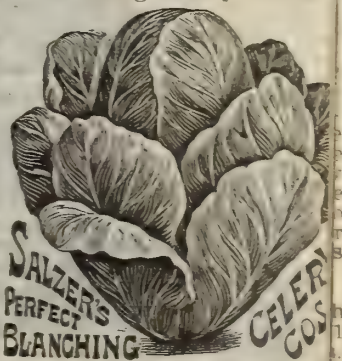 SALZER'S
PERFECT
BLANCHING
CELERY
COS